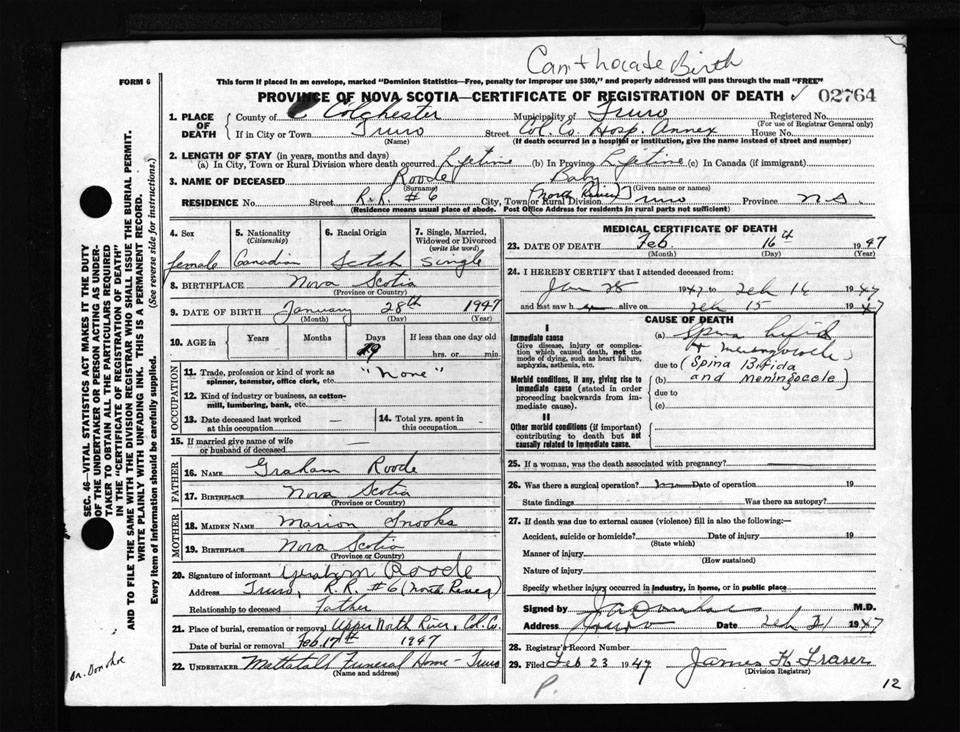 Can't locate Birth
FORM 6
This form if placed in an envelope, marked "Dominion Statistics—Free, penalty for improper use $300," and properly addressed will pass through the mail "FREE"
PROVINCE OF NOVA SCOTIA—CERTIFICATE OF REGISTRATION OF DEATH 02764
1. PLACE OF DEATH County of Colchester Municipality of Truro Registered No.
(For use of Registrar General only)
If in City or Town Truro Street Col. Co. Hosp. Annex House No.
(Name) (If death occurred in a hospital or institution, give the name instead of street and number)
2. LENGTH OF STAY (in years, months and days)
(a) In City, Town or Rural Division where death occurred Lifetime (b) In Province Lifetime (c) In Canada (if immigrant)
3. NAME OF DECEASED Roode Baby
(Surname) (Given name or names)
RESIDENCE No. Street R.R. #6 City, Town or Rural Division (North River) Truro Province N.S.
(Residence means usual place of abode. Post Office Address for residents in rural parts not sufficient)
4. Sex female
5. Nationality (Citizenship) Canadian
6. Racial Origin Scotch
7. Single, Married, Widowed or Divorced (write the word) Single
8. BIRTHPLACE Nova Scotia
(Province or Country)
9. DATE OF BIRTH January 28th 1947
(Month) (Day) (Year)
10. AGE in Years Months Days 19 If less than one day
hrs. or min.
OCCUPATION
11. Trade, profession or kind of work as spinner, teamster, office clerk, etc. "None"
12. Kind of industry or business, as cotton-mill, lumbering, bank, etc.
13. Date deceased last worked at this occupation —
14. Total yrs. spent in this occupation —
15. If married give name of wife or husband of deceased —
FATHER
16. NAME Graham Roode
17. BIRTHPLACE Nova Scotia
(Province or Country)
MOTHER
18. MAIDEN NAME Marion Snooks
19. BIRTHPLACE Nova Scotia
(Province or Country)
20. Signature of informant Graham Roode
Address Truro, R.R. #6 (North River)
Relationship to deceased Father
21. Place of burial, cremation or removal Upper North River, Col. Co.
Date of burial or removal Feb. 17th 1947
22. UNDERTAKER Mattatall Funeral Home - Truro
(Name and address)
MEDICAL CERTIFICATE OF DEATH
23. DATE OF DEATH Feb. 16th 1947
(Month) (Day) (Year)
24. I HEREBY CERTIFY that I attended deceased from:
Jan 28 1947 to Feb 16 1947
and last saw h er alive on Feb 15 1947
CAUSE OF DEATH
I
Immediate cause
Give disease, injury or complication which caused death, not the mode of dying, such as heart failure, asphyxia, asthenia, etc.
(a) Spina bifida
+ meningocele
due to (Spina Bifida
(b) and Meningocele)
due to
(c)
Morbid conditions, if any, giving rise to immediate cause (stated in order proceeding backwards from immediate cause).
II
Other morbid conditions (if important) contributing to death but not causally related to immediate cause.
25. If a woman, was the death associated with pregnancy?
26. Was there a surgical operation? no Date of operation 19
State findings Was there an autopsy?
27. If death was due to external causes (violence) fill in also the following:—
Accident, suicide or homicide? Date of injury 19
(State which)
Manner of injury
(How sustained)
Nature of injury
Specify whether injury occurred in industry, in home, or in public place
Signed by M.D.
Address Truro Date Feb 1947
28. Registrar's Record Number
29. Filed Feb 23 1947 James K Fraser
(Division Registrar)
P.
12
SEC. 46—VITAL STATISTICS ACT MAKES IT THE DUTY OF THE UNDERTAKER OR PERSON ACTING AS UNDERTAKER TO OBTAIN ALL THE PARTICULARS REQUIRED IN THE "CERTIFICATE OF REGISTRATION OF DEATH"
AND TO FILE THE SAME WITH THE DIVISION REGISTRAR WHO SHALL ISSUE THE BURIAL PERMIT.
WRITE PLAINLY WITH UNFADING INK. THIS IS A PERMANENT RECORD.
Every item of information should be carefully supplied. (See reverse side for instructions.)
Dr. Donahoe